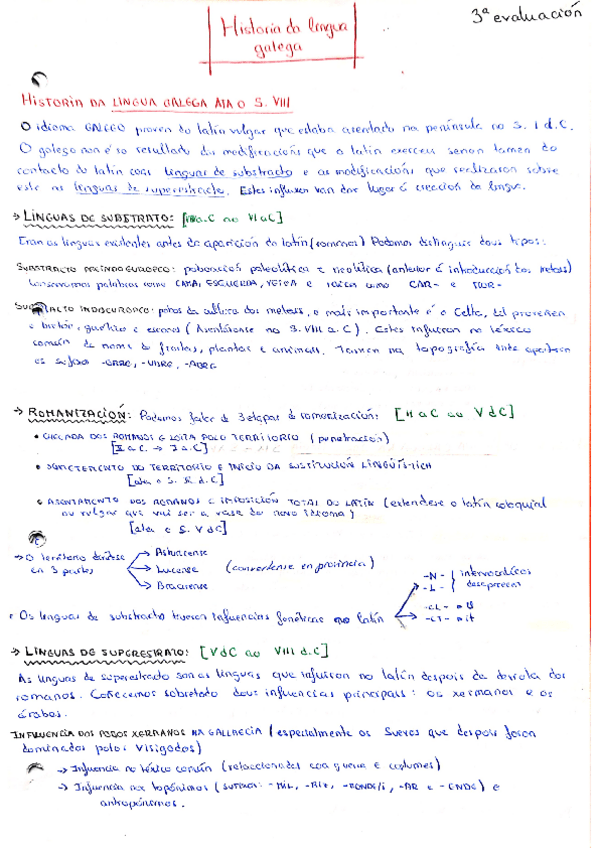 3ª evaluación
Historia da lingua
galega
HISTORIA DA LINGUA GALEGA ATA O S. VIII
O idioma GALEGO proven do latín vulgar que estaba asentado na península no S. I d.C.
O galego non é só resultado das modificacións que o latín exerceu senon tamen do
contacto do latín coas linguas de substrato e as modificacións que realizaron sobre
este as linguas de superestrato. Estes influxos van dar lugar á creación da lingua.
→ LINGUAS DE SUBSTRATO:
Eran as linguas existentes antes da aparición do latín (romanos) Podemos distinguir dous tipos:
SUBSTRACTO PREINDOEUROPEO: poboación paleolítica e neolítica (anterior á introducción dos metais)
Conservamos palabras como CAMA, ESQUERDA, VEIGA e raíces como CAR- e
SUBSTRACTO INDOEUROPEO: pobos da cultura dos metais, o máis importante é o Celta,
(Asentáronse no S. VIII a.C). Estes influiron no léxico
común de nome de froitas, plantas e animais. Tamen na
os sufixos
→ ROMANIZACIÓN: Podemos falar de 3 etapas de romanización: [II a.C ao V d C]
• CHEGADA DOS ROMANOS E LOITA POLO TERRITORIO (penetración)
• SOMETEMENTO DO TERRITORIO E INICIO DA SUSTITUCIÓN LINGÜÍSTICA
• ASENTAMENTO DOS ROMANOS E IMPOSICIÓN TOTAL DO LATÍN (extendese o latín coloquial
ou vulgar que vai ser a base do novo idioma)
[ata o S. V d C]
→ O territorio divídese
en 3 partes
Asturicense
Lucense
Bracarense
(convertense en provincia)
• As linguas de substrato tiveron influencias fonéticas no latín
-N-
-L-
intervocálicos
desaparecen
-CT- → it
→ LINGUAS DE SUPERESTRATO: [V d C ao VIII d.C]
As linguas de superestrato son as linguas que influiron no latín despois da derrota dos
romanos. Coñecemos sobretodo dous influencias principais: os xermanos e os
árabes.
INFLUENCIA DOS POBOS XERMANOS NA GALLAECIA (especialmente os Suevos que despois foron
dominados polos Visigodos)
→ Influencia no léxico común (relaccionados coa guerra e costumes)
→ Influencia nos topónimos (sufixos: -MIL, -RIZ, , -AR e ) e
antropónimos.